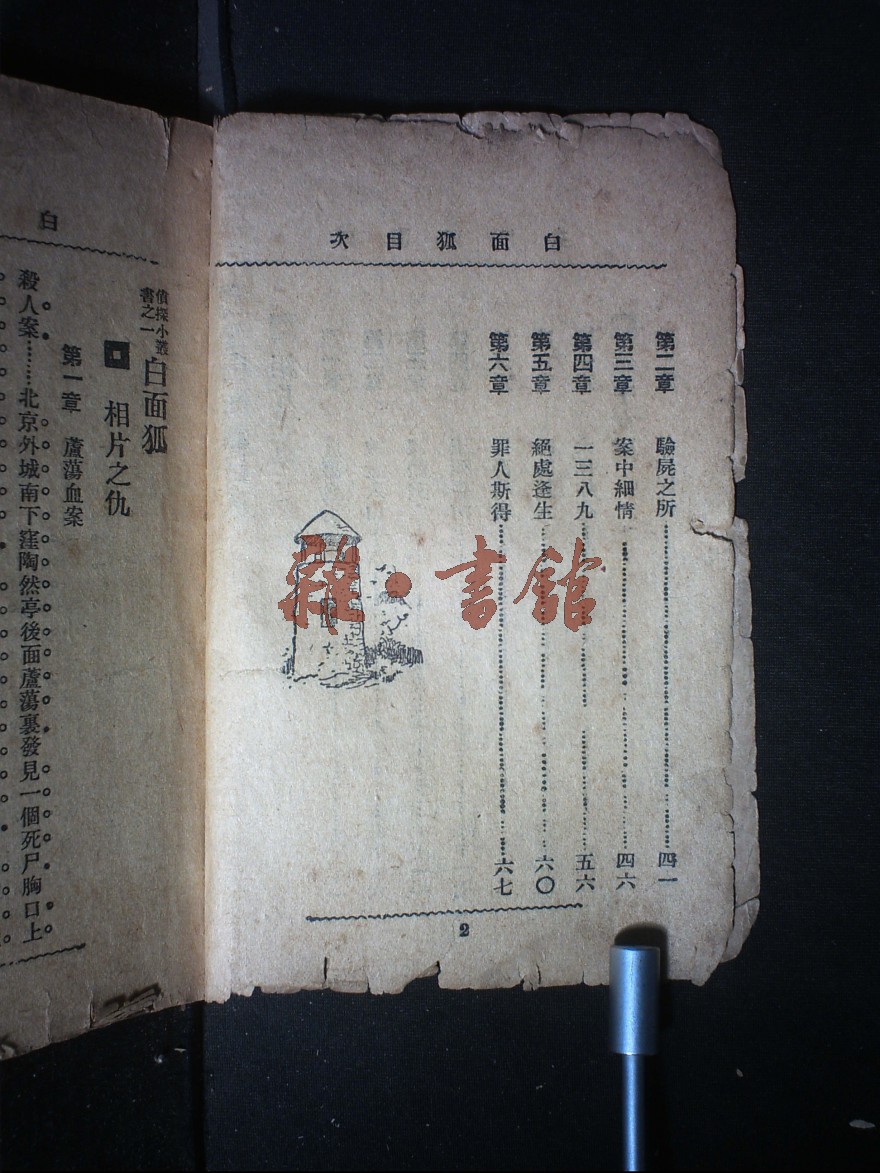 白面狐目次
第二章 驗屍之所……四一
第三章 案中細情……四六
第四章 一三八九……五六
第五章 絕處逢生……六〇
第六章 罪人斯得……六七
2
雜·書館
白
偵探小叢書之一
白面狐
相片之仇
第一章 蘆蕩血案
殺人案……北京外城南下窪陶然亭後面蘆蕩裏發見一個死尸胸口上